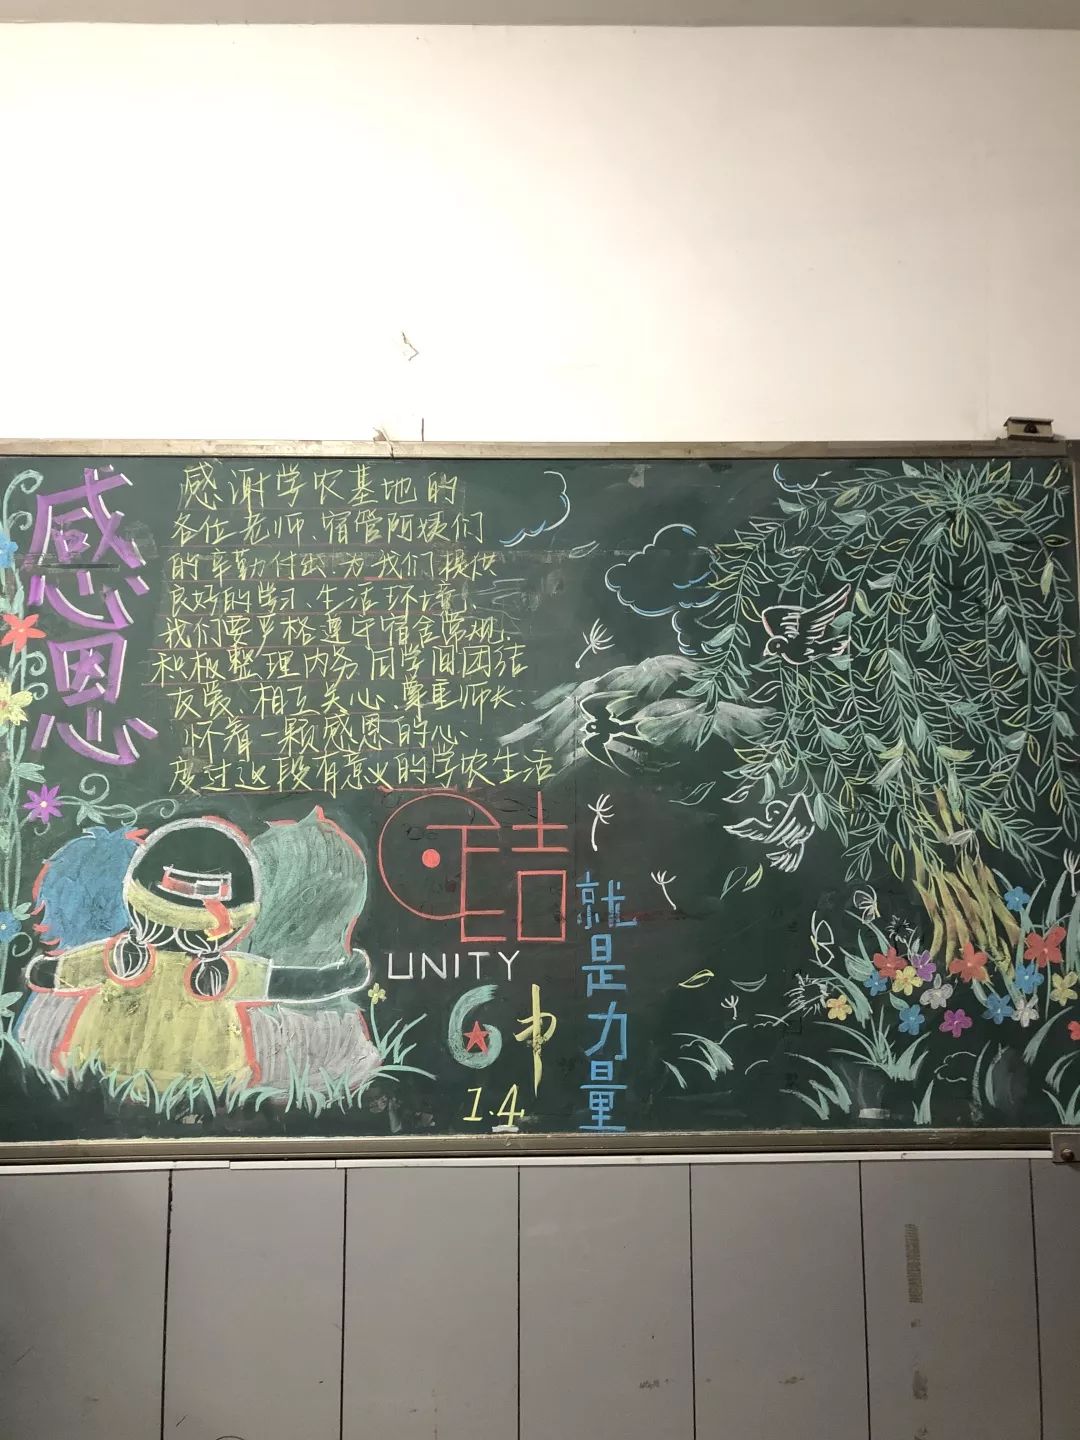 感恩心
感谢学农基地的
各位老师、宿管阿姨们
的辛勤付出、为我们提供
良好的学习、生活环境、
我们要严格遵守宿舍常规、
积极整理内务、同学间团结
友爱、相互关心、尊重师长、
怀着一颗感恩的心、
度过这段有意义的学农生活
团结
UNITY
就是力量
6中
1.4